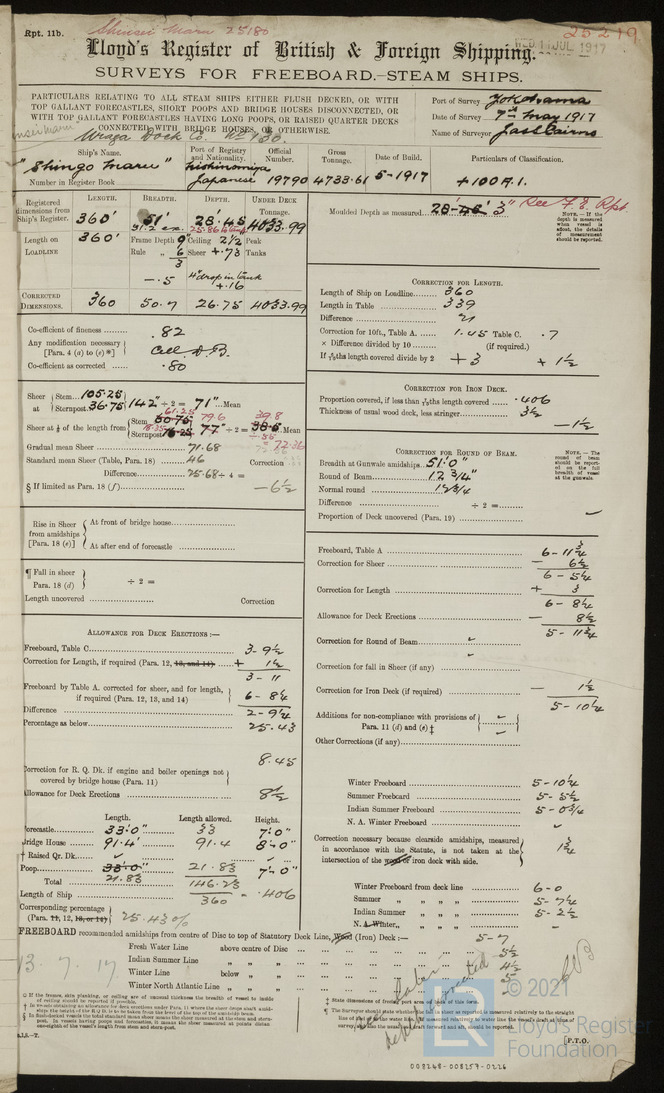 Rpt. 11b.
Shinsei Maru 25180
25219
WED. 11 JUL 1917
Lloyd's Register of British & Foreign Shipping.
SURVEYS FOR FREEBOARD.—STEAM SHIPS.
PARTICULARS RELATING TO ALL STEAM SHIPS EITHER FLUSH DECKED, OR WITH
TOP GALLANT FORECASTLES, SHORT POOPS AND BRIDGE HOUSES DISCONNECTED, OR
WITH TOP GALLANT FORECASTLES HAVING LONG POOPS, OR RAISED QUARTER DECKS
CONNECTED WITH BRIDGE HOUSES, OR OTHERWISE.
Port of Survey Yokohama
Date of Survey 7th May 1917
Name of Surveyor Jas Cairns
Ship's Name. Port of Registry and Nationality. Official Number. Gross Tonnage. Date of Build. Particulars of Classification.
"Shingo Maru" Nishinomiya Japanese 19790 4733.61 5-1917 +100A.1.
Number in Register Book
Registered dimensions from Ship's Register. LENGTH. BREADTH. DEPTH. UNDER DECK TONNAGE.
360' 51' 28.45 4033.99
Moulded Depth as measured 28'-3" See F.E. Rpt
NOTE.—If the depth is measured when vessel is afloat, the details of measurement should be reported.
Length on LOADLINE 360' Frame Depth 9" Ceiling 2½ Peak
Rule „ 6 Sheer +.73 Tanks
3
-.5 4" drop in tank +.16
CORRECTED DIMENSIONS. 360 50.7 26.75 4033.99
Co-efficient of fineness .82
Any modification necessary [Para. 4 (a) to (e)*] Cell D.B.
Co-efficient as corrected .80
Sheer at Stem 105.25 Sternpost 36.75 142" ÷ 2 = 71" Mean
Sheer at ⅛ of the length from Stem 61.25 Sternpost 18.35 77" ÷ 2 = 38.5 Mean
79.6 39.8
Gradual mean Sheer 71.68 72.36
Standard mean Sheer (Table, Para. 18) 46 Correction
Difference 25.68 ÷ 4 =
§ If limited as Para. 18 (f) — 6½
Rise in Sheer from amidships [Para. 18 (e)] At front of bridge house
At after end of forecastle
¶ Fall in sheer Para. 18 (d) ÷ 2 =
Length uncovered Correction
ALLOWANCE FOR DECK ERECTIONS :—
Freeboard, Table C 3-9½
Correction for Length, if required (Para. 12, 13, and 14) + 1½
3-11
Freeboard by Table A. corrected for sheer, and for length, if required (Para. 12, 13, and 14) 6-8¼
Difference 2-9¼
Percentage as below 25.43
8.45
Correction for R. Q. Dk. if engine and boiler openings not covered by bridge house (Para. 11)
Allowance for Deck Erections 8½
Length. Length allowed. Height.
Forecastle 33'.0" 33 7'.0"
Bridge House 91.4' 91.4 8'.0"
† Raised Qr. Dk.
Poop 33'.0" 21.83 21.83 7'.0"
Total 146.23
Length of Ship 360 = .406
Corresponding percentage (Para. 11, 12, 13, or 14) 25.43%
CORRECTION FOR LENGTH.
Length of Ship on Loadline 360
Length in Table 339
Difference 21
Correction for 10ft., Table A. 1.05 Table C. .7
× Difference divided by 10 (if required.)
If 6/10ths length covered divide by 2 + 3 + 1½
CORRECTION FOR IRON DECK.
Proportion covered, if less than 7/10ths length covered .406
Thickness of usual wood deck, less stringer 3½
— 1½
CORRECTION FOR ROUND OF BEAM.
Breadth at Gunwale amidships 51'.0"
Round of Beam 12¾"
Normal round 12¾
Difference ÷ 2 =
Proportion of Deck uncovered (Para. 19)
NOTE.—The round of beam should be reported on the full breadth of vessel at the gunwale.
Freeboard, Table A 6-11¾
Correction for Sheer — 6½
6-5¼
Correction for Length + 3
6-8¼
Allowance for Deck Erections — 8½
5-11¾
Correction for Round of Beam
Correction for fall in Sheer (if any)
Correction for Iron Deck (if required) — 1½
5-10¼
Additions for non-compliance with provisions of Para. 11 (d) and (e) ‡
Other Corrections (if any)
Winter Freeboard 5-10¼
Summer Freeboard 5-5½
Indian Summer Freeboard 5-0¾
N. A. Winter Freeboard
Correction necessary because clearside amidships, measured in accordance with the Statute, is not taken at the intersection of the wood or iron deck with side. 1¾
Winter Freeboard from deck line 6-0
Summer „ „ „ „ 5-7¼
Indian Summer „ „ „ „ 5-2½
N. A. Winter „ „ „ „
FREEBOARD recommended amidships from centre of Disc to top of Statutory Deck Line, Wood (Iron) Deck :— 5-7
Fresh Water Line above centre of Disc 5½
Indian Summer Line „ „ 4½
Winter Line below „
Winter North Atlantic Line „ „
13.7.17
[P.T.O.
© 2021
Lloyd's Register
Foundation
008248-008257-0226